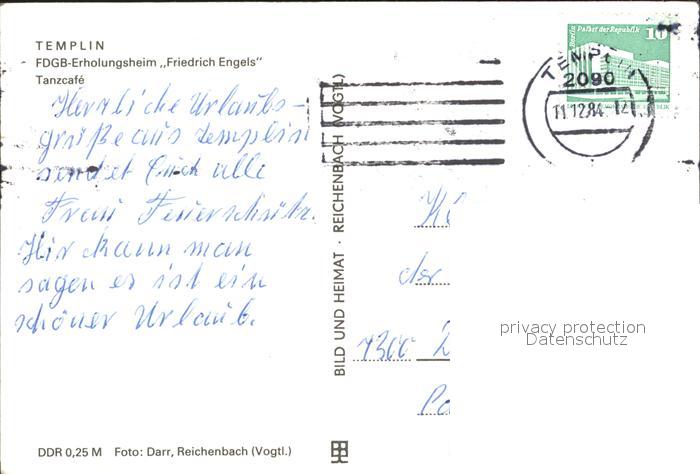 TEMPLIN
FDGB-Erholungsheim „Friedrich Engels"
Tanzcafé
Herzliche Urlaubs-
grüße aus Templin
sendet Euch alle
Frau Feuerschütz.
Hir kann man
sagen es ist ein
schöner Urlaub.
DDR 0,25 M Foto: Darr, Reichenbach (Vogtl.)
BILD UND HEIMAT · REICHENBACH (VOGTL)
Berlin Palast der Republik 10
TEMPLIN
2090
11.12.84-12
der
1300
privacy protection
Datenschutz